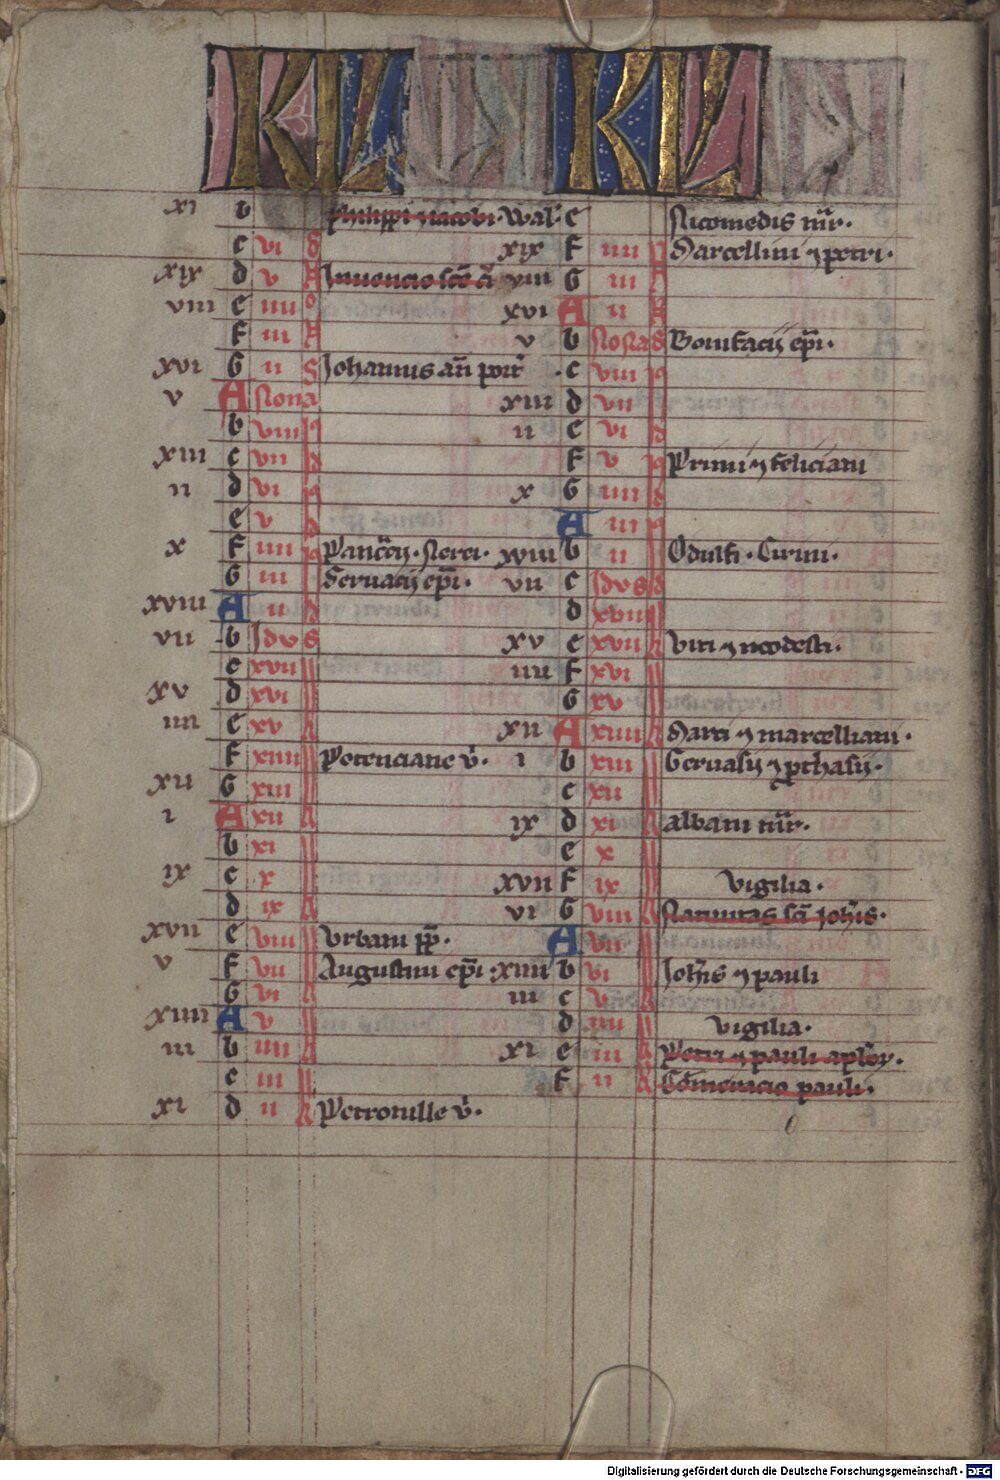 KL KL
xi b Philippi et iacobi. Wal'.
c vi
xix d v Inuencio scē c̄
viii e iiii
f iii
xvi G ii Johannis an̄ port
v A Nona
b viii
xiii c vii
ii d vi
e v
x f iiii Pancᵃcij. Nerei.
G iii Seruacij ep̄i.
xviii A ii
vii b Idus
c xvii
xv d xvi
iiii e xv
f xiiii Potenciane v̄.
xii G xiii
i A xii
b xi
ix c x
d ix
xvii e viii Vrbani pp̄.
v f vii Augustini ep̄i.
G vi
xiiii A v
iii b iiii
c iii
xi d ii Petronille v̄.
e Nicomedis mr̄.
xix f iiii Marcellini et petri.
viii G iii
xvi A ii
v b Nonas Bonifacij ep̄i.
c viii
xiii d vii
ii e vi
f v Primi et feliciani
x G iiii
A iii
xviii b ii Odulfi. Cirini.
vii c Idus
d xviii
xv e xvii Viti et modesti.
iiii f xvi
G xv
xii A xiiii Marci et marcelliani.
i b xiii Geruasij et pthasij.
c xii
ix d xi albani mr̄.
e x
xvii f ix Vigilia.
vi G viii Natiuitas sc̄i Joh̄is.
A vii
xiiii b vi Joh̄is et pauli
iii c v
d iiii Vigilia.
xi e iii Petri et pauli aplōr.
f ii Cōmemoracio pauli.
Digitalisierung gefördert durch die Deutsche Forschungsgemeinschaft - DFG